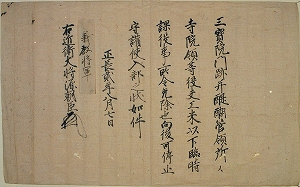 三寳院門跡并醍醐管領所〻
寺院領等段銭人夫以下臨時
課役事所令免除之向後可停止
守護使入部之状如件
正長貳年八月七日
義教将軍
右近衛大将源朝臣